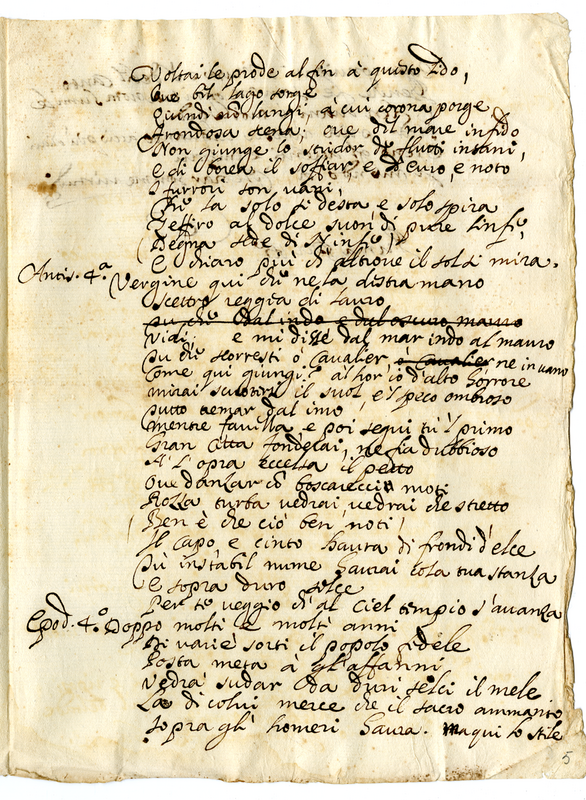 Voltai le prode al fin à questo lido,
Ove bil lago sorge
Quindi nõ lungi, à cui corona porge
Frondosa scena; ove del mare infido
Non giunge lo stridor de flutti insani,
e di borea il soffiar, e d'euro, e noto
I furori son vani,
Che la solo si desta e solo spira
Zeffiro al dolce suon di pure linfe,
(Degna sede di Ninfe)
E chiaro più ch'altrove il sol si mira.
Antis. 4.a Vergine qui che ne la destra mano
Scettro reggia di lauro
Vidi, e mi disse dal mar indo al mauro
Tu che scorresti ò Cavalier, ne in vano
Come qui giungi? alhor io d'alto horrore
mirai scuotersi il suol, e'l speco ombroso
tutto tremar dal imo
mentre favella, e poi seguì tu'l primo
Gran Città fonderai, ne fia dubbioso
A' l'opra eccelsa il petto
Ove danzar cõ boscarecci moti
Rozza turba vedrai, vedrai che stretto
(Ben è che ciò ben noti)
Il capo, e cinto havrà di frondi d'elce
Tù instabil nume havrai cola tua stanza
E sopra duro selce
Per te veggio ch'al Ciel tempio s'avanza
Epod. 4.o Doppo molti e molti anni
Di varie sorti il popolo fedele
Posta meta à gl'affanni
Vedrà sudar da duri selci il mele
La di colui merce che il sacro ammanto
sopra gl'homeri havrà. ma qui lo stile
5